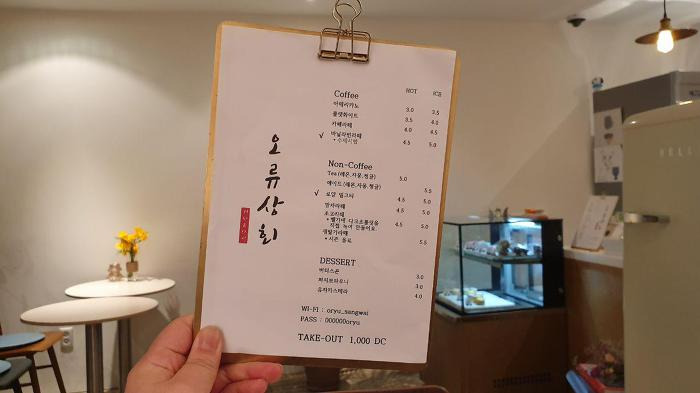 오류상회
Coffee HOT ICE
아메리카노 3.0 3.5
플랫화이트 3.5 4.0
카페라떼 4.0 4.5
✓ 바닐라빈라떼 4.5 5.0
• 수제시럽
Non-Coffee
Tea (레몬,자몽,청귤) 5.0
에이드 (레몬,자몽,청귤) 5.5
✓ 로얄 밀크티 4.5 5.0
말차라떼 4.5 5.0
초코라떼 4.5 5.0
• 벨기에 다크초콜릿을
직접 녹여 만들어요.
깔라만시 5.5
• 시즌 음료
DESSERT
버터스콘 3.0
피치브라우니 3.0
유자카스테라 4.0
WI-FI : oryu_sangwai
PASS : 000000oryu
TAKE-OUT 1,000 DC